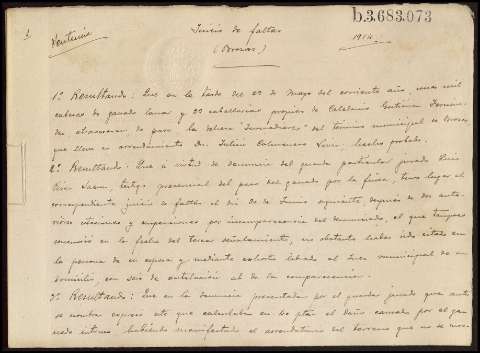 b.3.683.073
Juicio de faltas
Sentencia
(Brozas)
1914
1º Resultando: Que en la tarde del 2 de Mayo del corriente año, unas mil
cabezas de ganado lanar y 20 caballerías propias de Catalino Gutierrez
de paso la dehesa del término municipal de Brozas
que lleva en arrendamiento Dn. Julian hechos probados.
2º Resultando: Que á virtud de denuncia del guarda particular jurado Luis
testigo presencial del paso del ganado por la finca, tuvo lugar el
correspondiente juicio de faltas el dia de Junio siguiente después de dos
citaciones y suspensiones por incomparecencia del denunciado, el que tampoco
concurrió en la fecha del tercer señalamiento, no obstante haber sido citado en
la persona de su esposa y mediante exhorto librado al Juez municipal de su
domicilio, con seis de antelación al de la comparecencia.
3º Resultando: Que en la denuncia presentada por el guarda jurado que antes
se nombra expresó éste que calculaba en ptas el daño causado por el ga-
nado intruso, habiendo manifestado el arrendatario del terreno que no se mos-